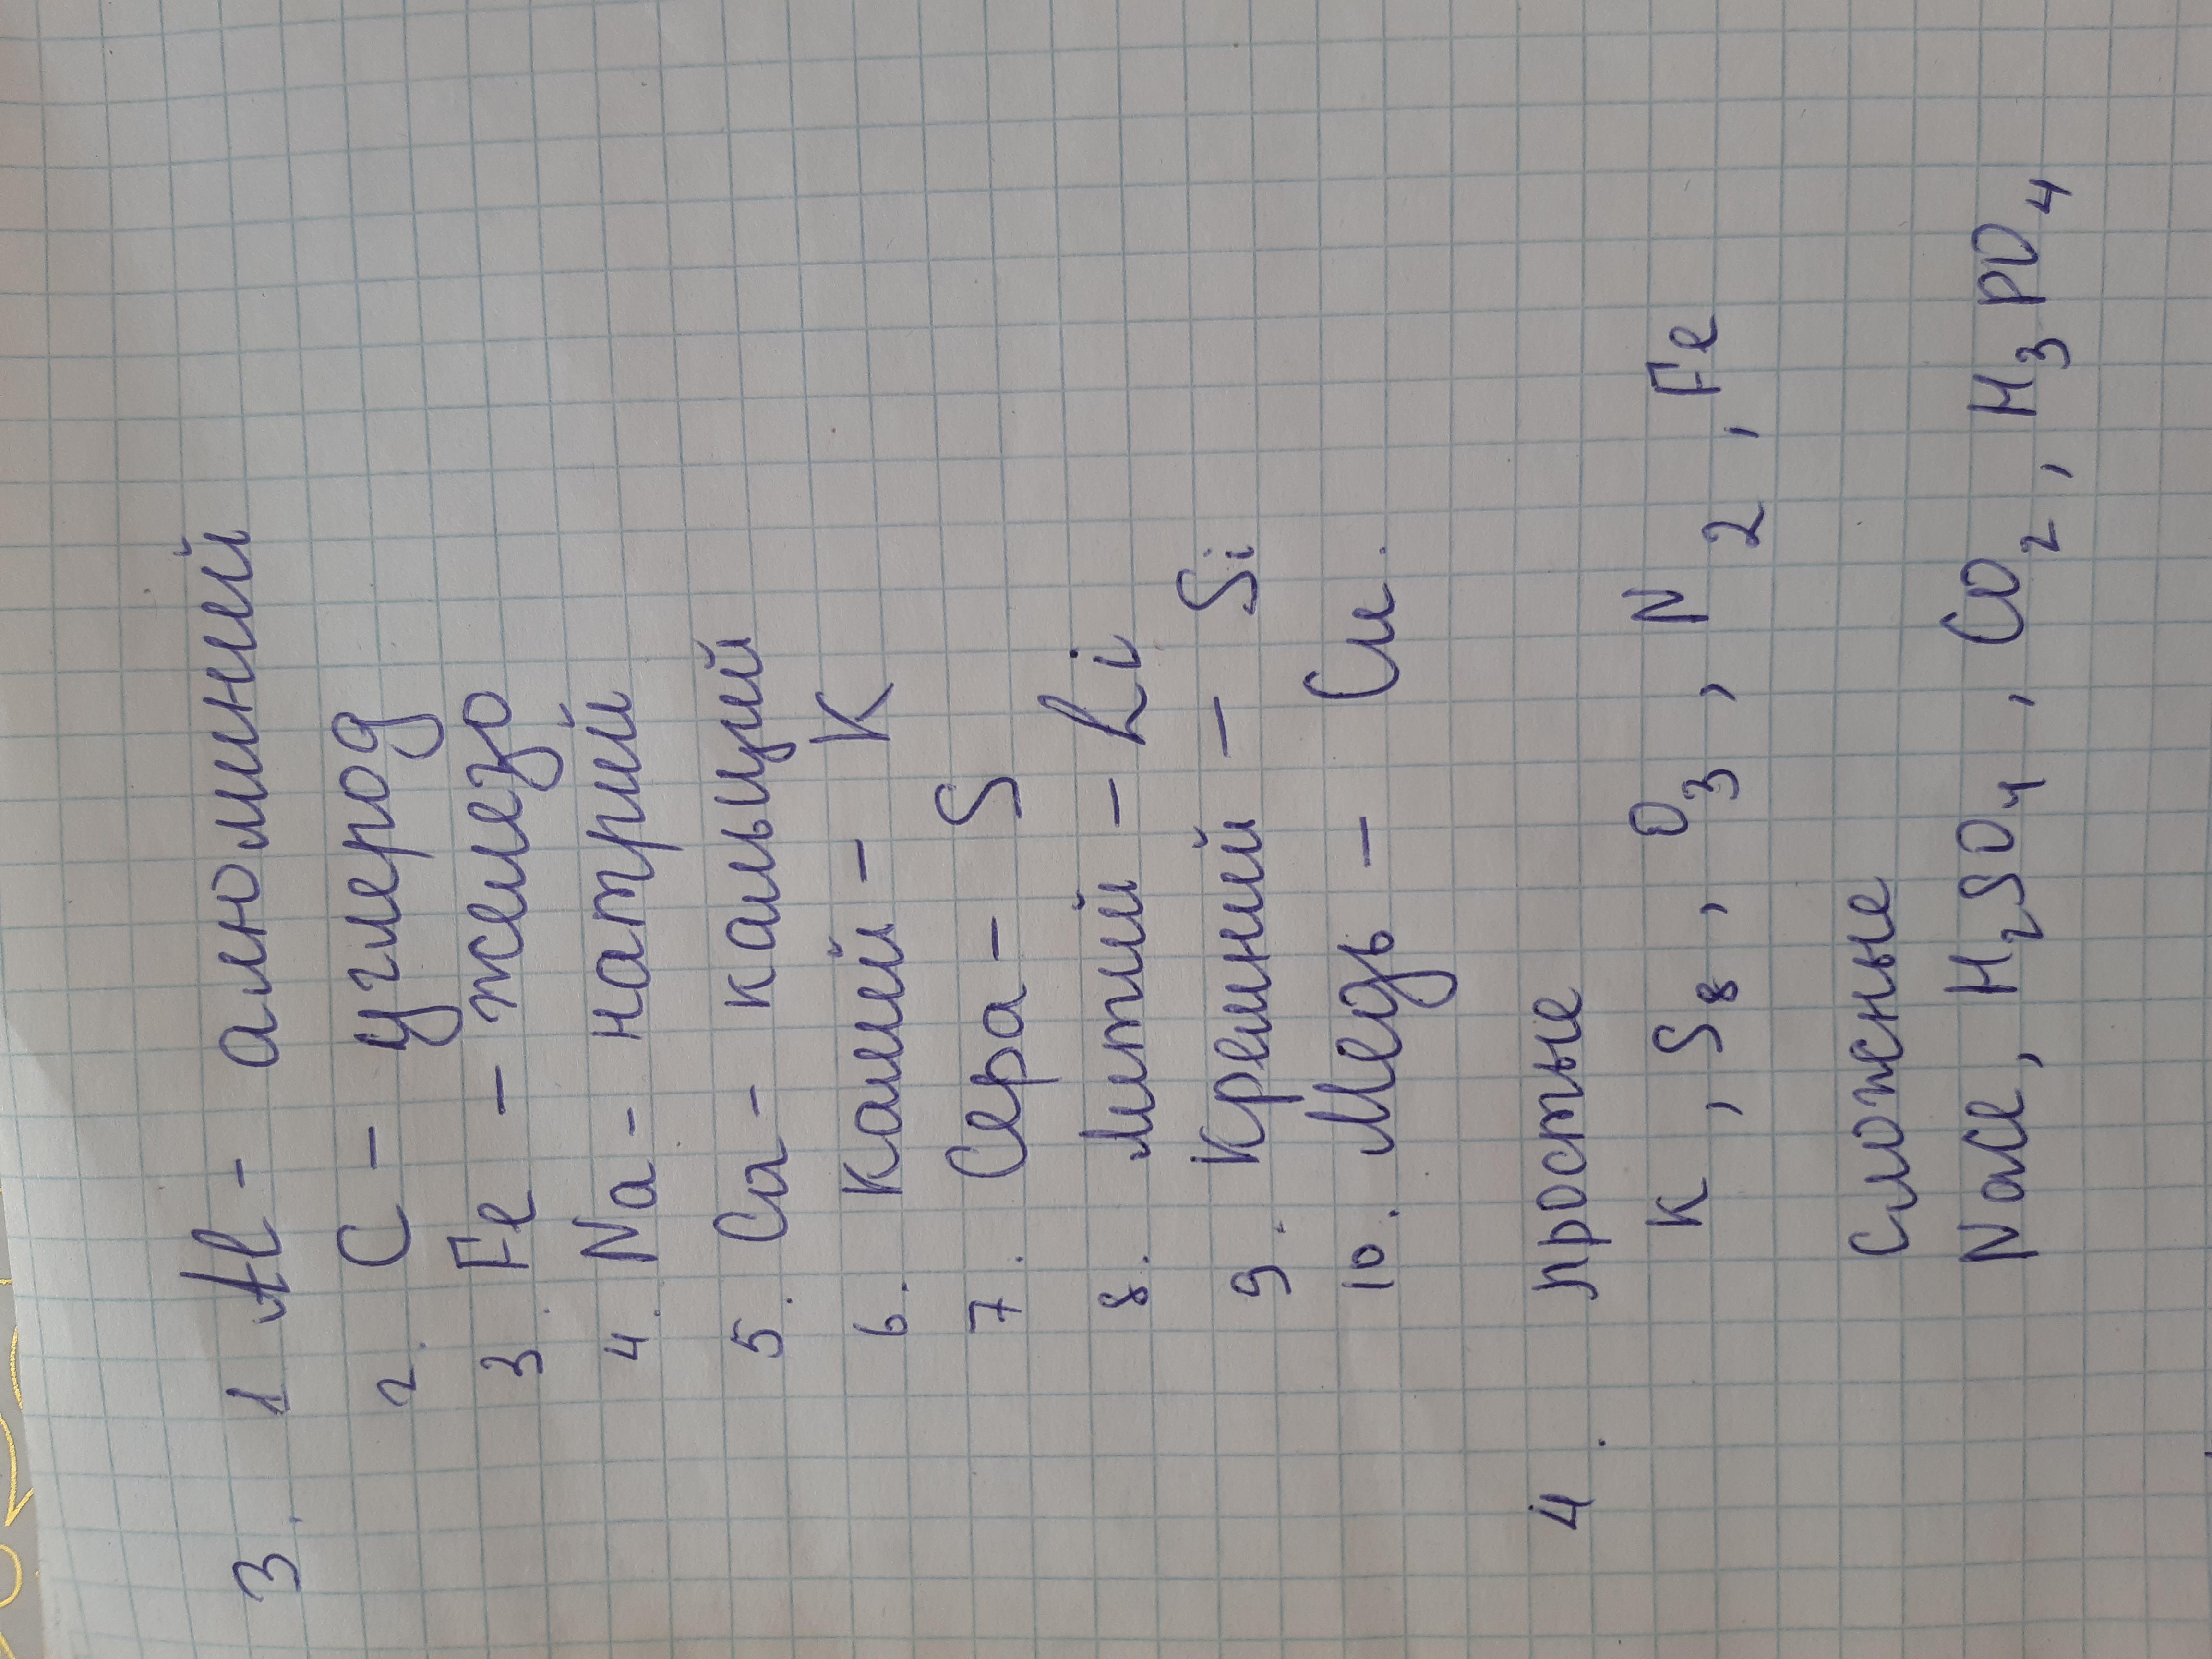 3. 1 Al - алюминий
2. C - углерод
3. Fe - железо
4. Na - натрий
5. Ca - кальций
6. Калий - K
7. Сера - S
8. Литий - Li
9. Кремний - Si
10. Медь - Cu.
4. простые
K, S₈, O₃, N₂, Fe
Сложные
NaCl, H₂SO₄, CO₂, H₃PO₄